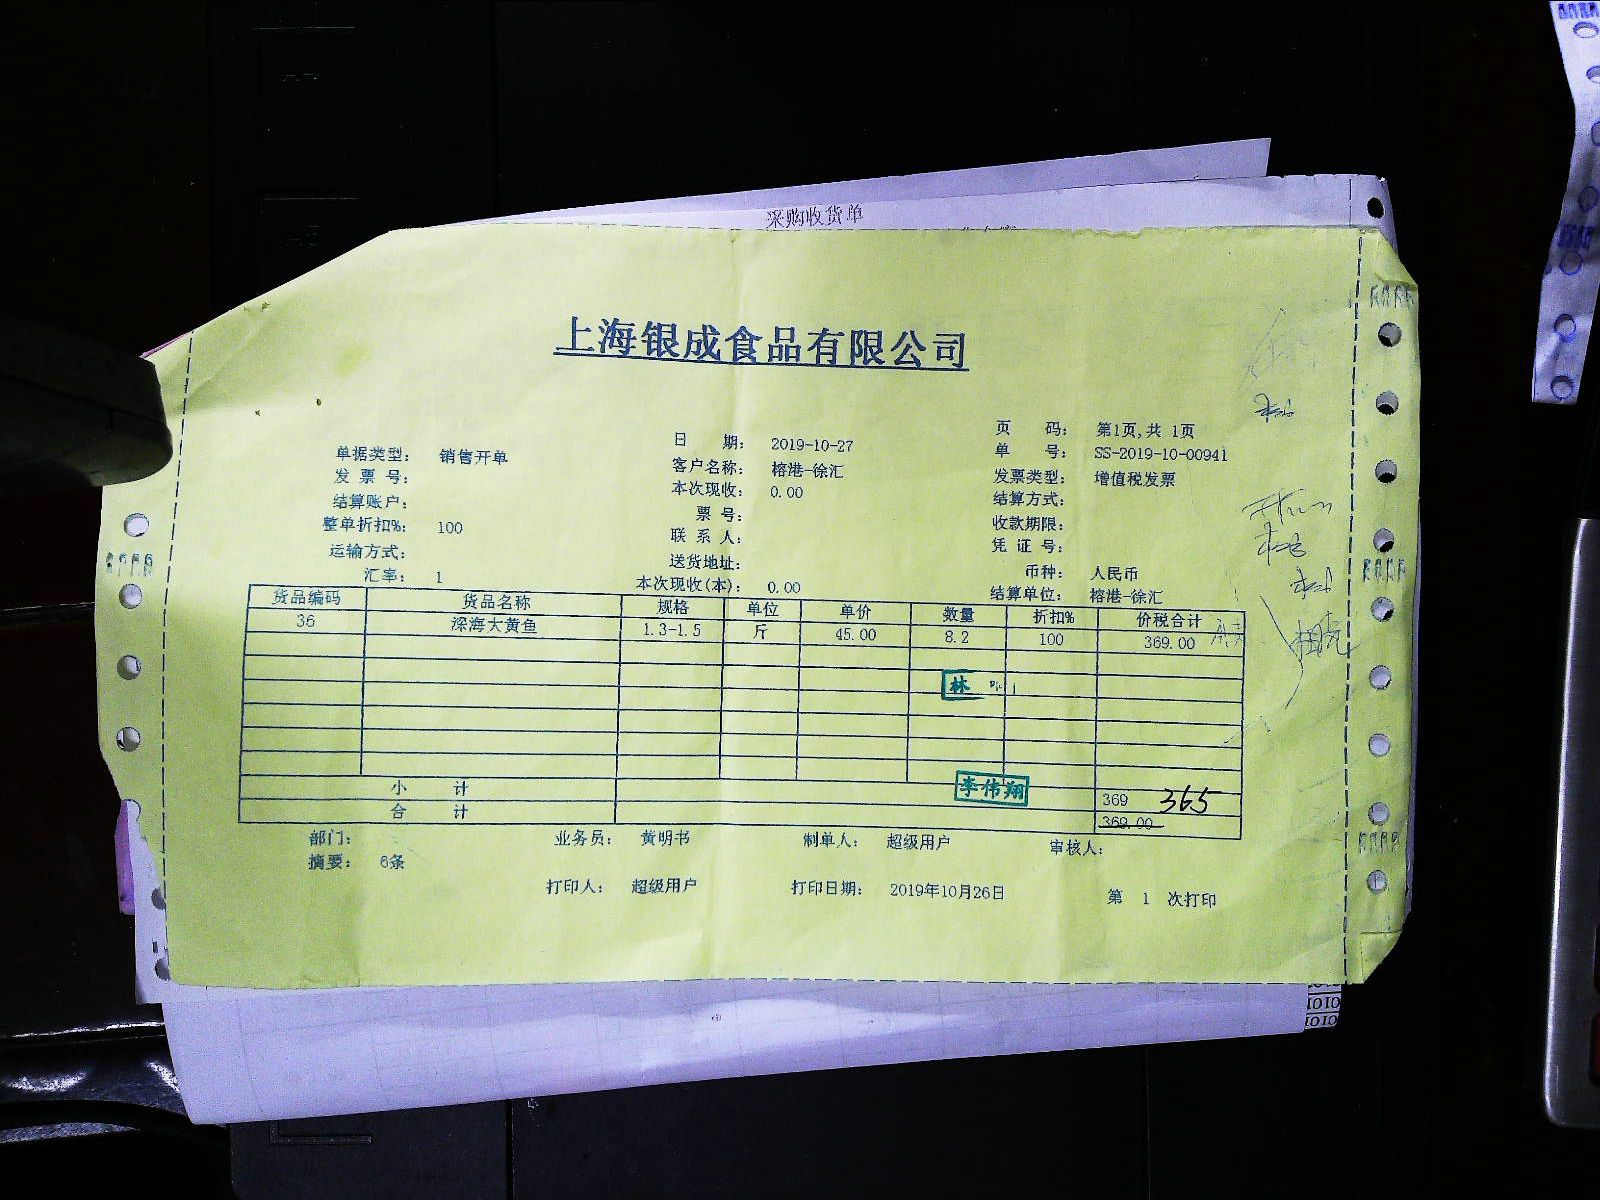 采购收货单
上海银成食品有限公司
单据类型： 销售开单 日 期： 2019-10-27 页 码： 第1页,共 1页
发 票 号： 客户名称： 榕港-徐汇 单 号： SS-2019-10-00941
结算账户： 本次现收： 0.00 发票类型： 增值税发票
整单折扣%： 100 票 号： 结算方式：
运输方式： 联 系 人： 收款期限：
汇率： 1 送货地址： 凭 证 号：
本次现收(本)： 0.00 币种： 人民币
结算单位： 榕港-徐汇
货品编码 货品名称 规格 单位 单价 数量 折扣% 价税合计
36 深海大黄鱼 1.3-1.5 斤 45.00 8.2 100 369.00
林
李伟翔
小 计 369 365
合 计 369.00
部门： 业务员： 黄明书 制单人： 超级用户 审核人：
摘要： 6条
打印人： 超级用户 打印日期： 2019年10月26日 第 1 次打印